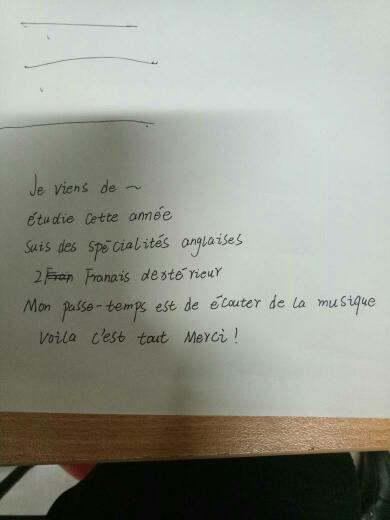 Je viens de ~
étudie cette année
suis des spécialités anglaises
2 Franais destérieur
Mon passe-temps est de écouter de la musique
Voila c'est tout Merci!